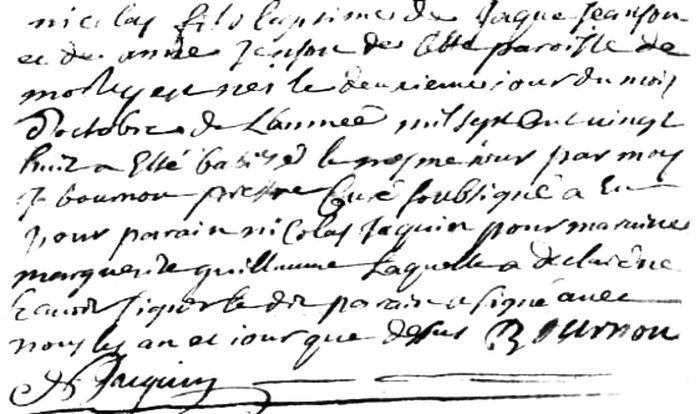 nicolas fils legitime de Jaque Jeanson
et de anne Jenson de cette paroisse de
est nez le deuxieme jour du mois
d'octobre de Lannee mil sept Cent vingt
huit a Esté batisé le mesme iour par moy
J bournon prestre Curé soubsigné a Eu
pour parain nicolas Jaquin pour maraine
marguerite guillaume Laquelle a declaré ne
scavoir signer le dit parain a signé avec
nous les an et iour que dessus Bournon
N Jaquin